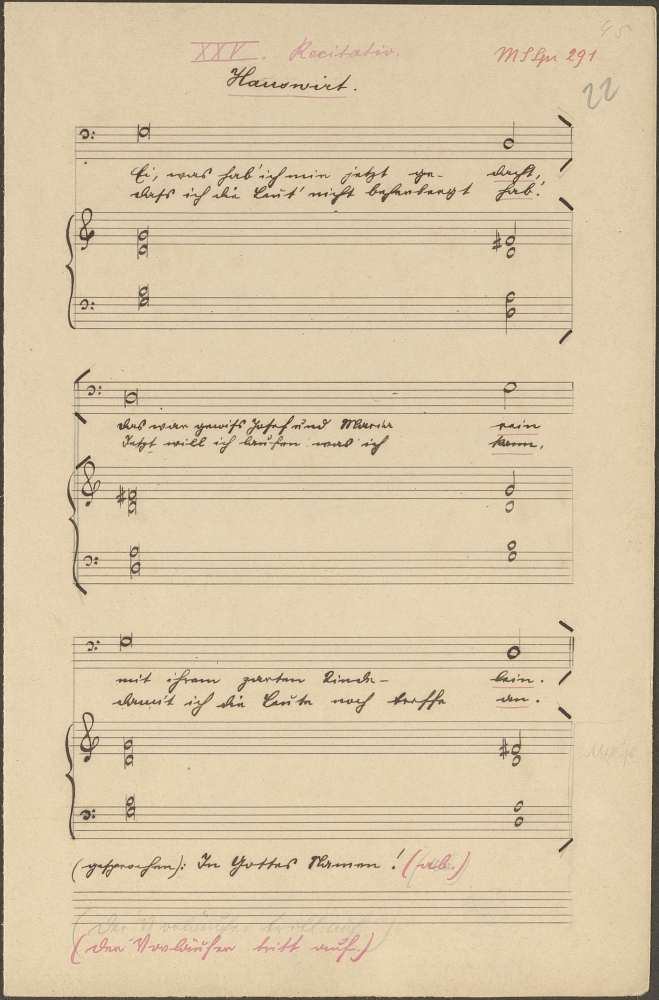 45
XXV. Recitativ.
MS Spr 291
22
Hauswirt.
Ei, was hab' ich mir jetzt ge- dacht,
dass ich die Leut' nicht beherbergt hab'.
Das war gewiss Josef und Maria rein
Jetzt will ich laufen was ich kann,
mit ihrem zarten Kinde- lein.
damit ich die Leute noch treffe an.
(gesprochen): In Gottes Namen! (ab.)
(Der Vorläufer tritt auf.)
(Der Vorläufer tritt auf.)